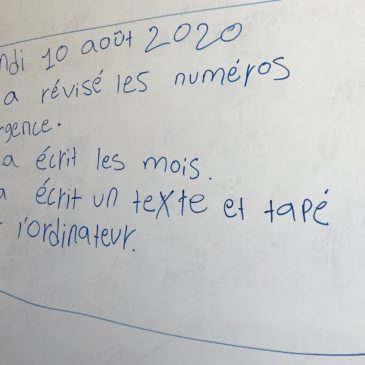 ndi 10 août 2020
a révisé les numéros
rgence.
a écrit les mois.
a écrit un texte et tapé
r l'ordinateur.